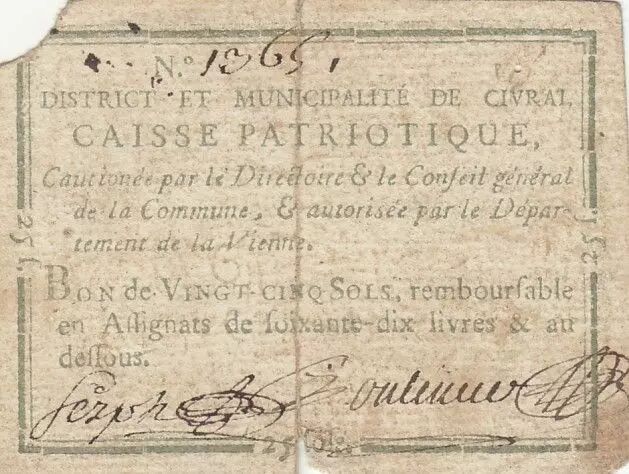 N.º 1365,
DISTRICT ET MUNICIPALITÉ DE CIVRAI,
CAISSE PATRIOTIQUE,
Cautionée par le Directoire & le Conſeil général
de la Commune, & autoriſée par le Dépar-
tement de la Vienne.
BON de VINGT-CINQ SOLS, rembourſable
en Aſſignats de ſoixante-dix livres & au
deſſous.
25 ſ.
25 ſ.
25 ſols.